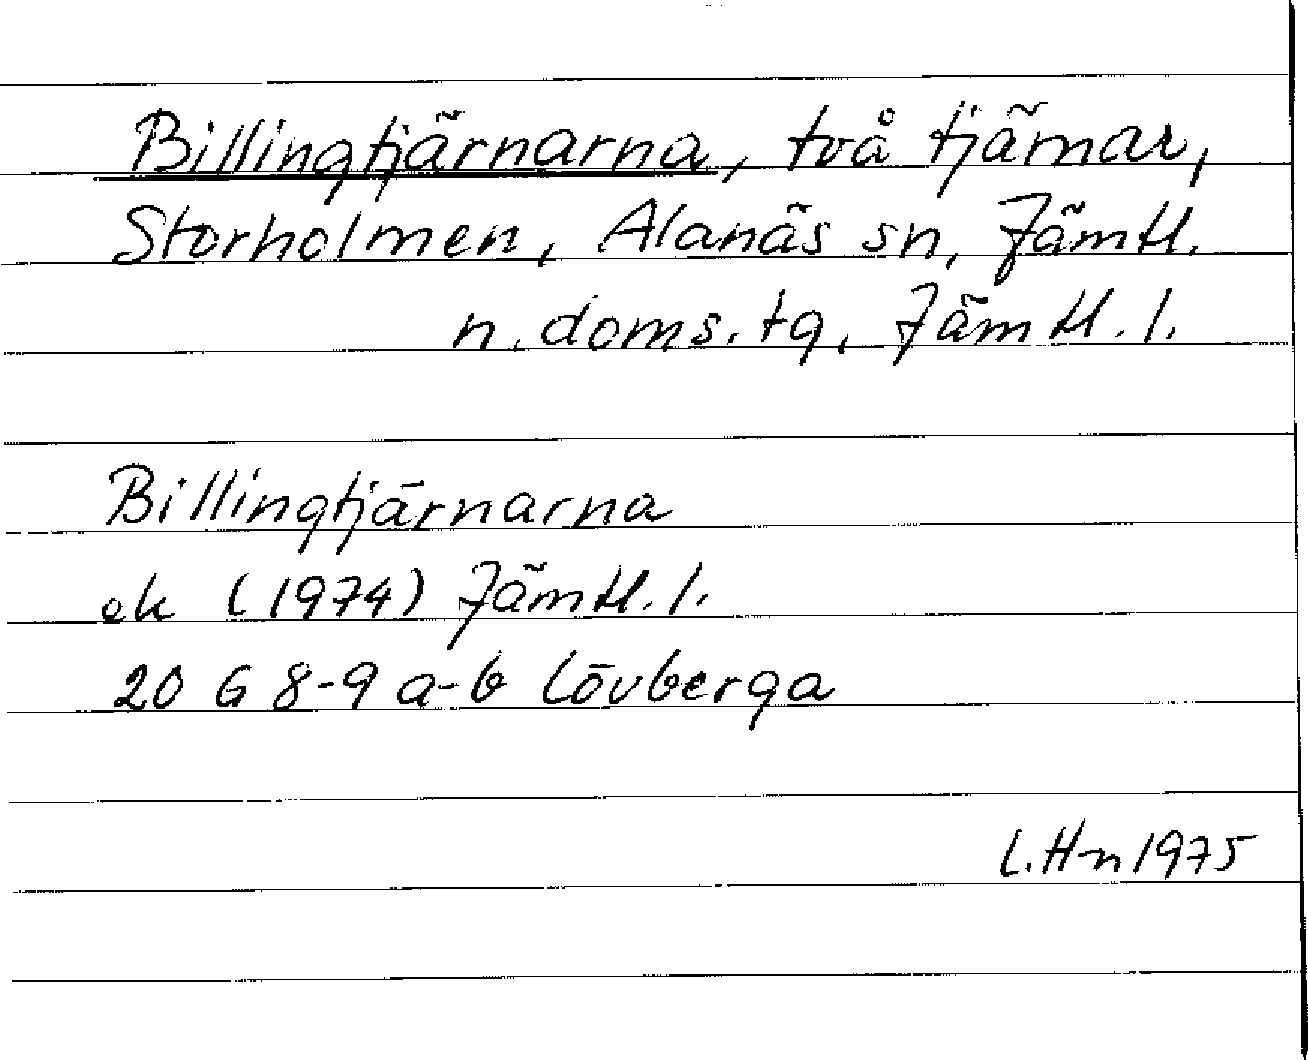 Billingtjärnarna, två tjärnar,
Storholmen, Alanäs sn, Jämtl.
n. doms. tg, Jämtl. l.
Billingtjärnarna
ek (1974) Jämtl. l.
20 G 8-9 a-b Lövberga
L. H-n 1975